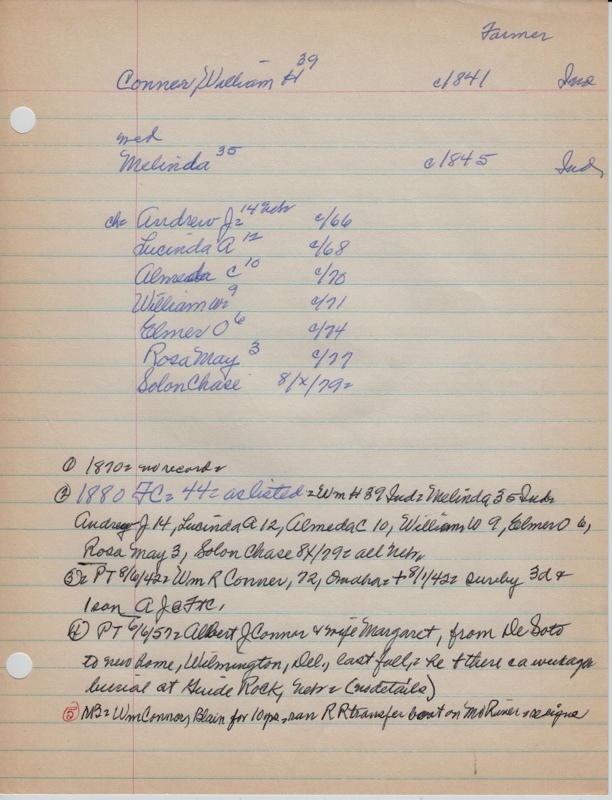 Farmer
Conner, William H 39 c/1841 Ind
med
Melinda 35 c/1845 Ind,
ch= Andrew J= 14 Nebr c/66
Lucinda A 12 c/68
Almeda C 10 c/70
William W= 9 c/71
Elmer O 6 c/74
Rosa May 3 c/77
Solon Chase 8/x/79=
① 1870= no record=
② 1880 FC= 44= as listed = Wm H 39 Ind= Melinda 35 Ind=
Andrew J 14, Lucinda A 12, Almeda C 10, William W 9, Elmer O 6,
Rosa May 3, Solon Chase 8x/79= all Nebr
③= PT 8/6/42= Wm R Conner, 72, Omaha= + 8/1/42= surv by 3d &
1 son A J @ Ft C,
④ PT 6/6/57= Albert J Connor & wife Margaret, from De Soto
to new home, Wilmington, Del, last fall,= he + there c a week ago
burial at Guide Rock, Nebr= (no details)
⑤ NB= Wm Connor, Blair for 10 yrs, ran R R transfer boat on Mo River=